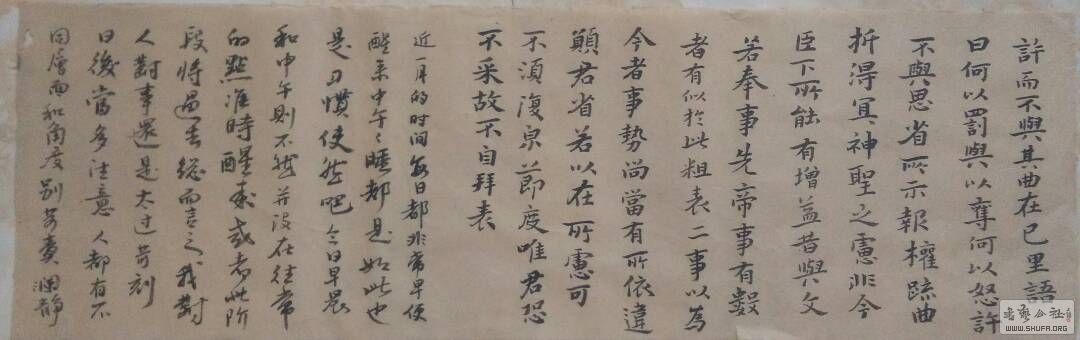 許而不與其曲在己里語
曰何以罰與以奪何以怒許
不與思省所示報權疏曲
折得冝神聖之慮非今
臣下所能有增益昔與文
若奉事先帝事有數
者有似於此粗表二事以為
今者事勢尚當有所依違
願君省若以在所慮可
不須復節度唯君恐
不采故不自拜表
近一月的时间每日都非常早便
醒来中午々睡都是如此也
是习惯使然吧今日早晨
和中午則不然并没在往常
的點准時醒来或者此阶
段将過去總而言之我對
人對事還是太过苛刻
日後當多注意人都有不
同層面和角度别苛责 静
WWW.SHUFA.ORG